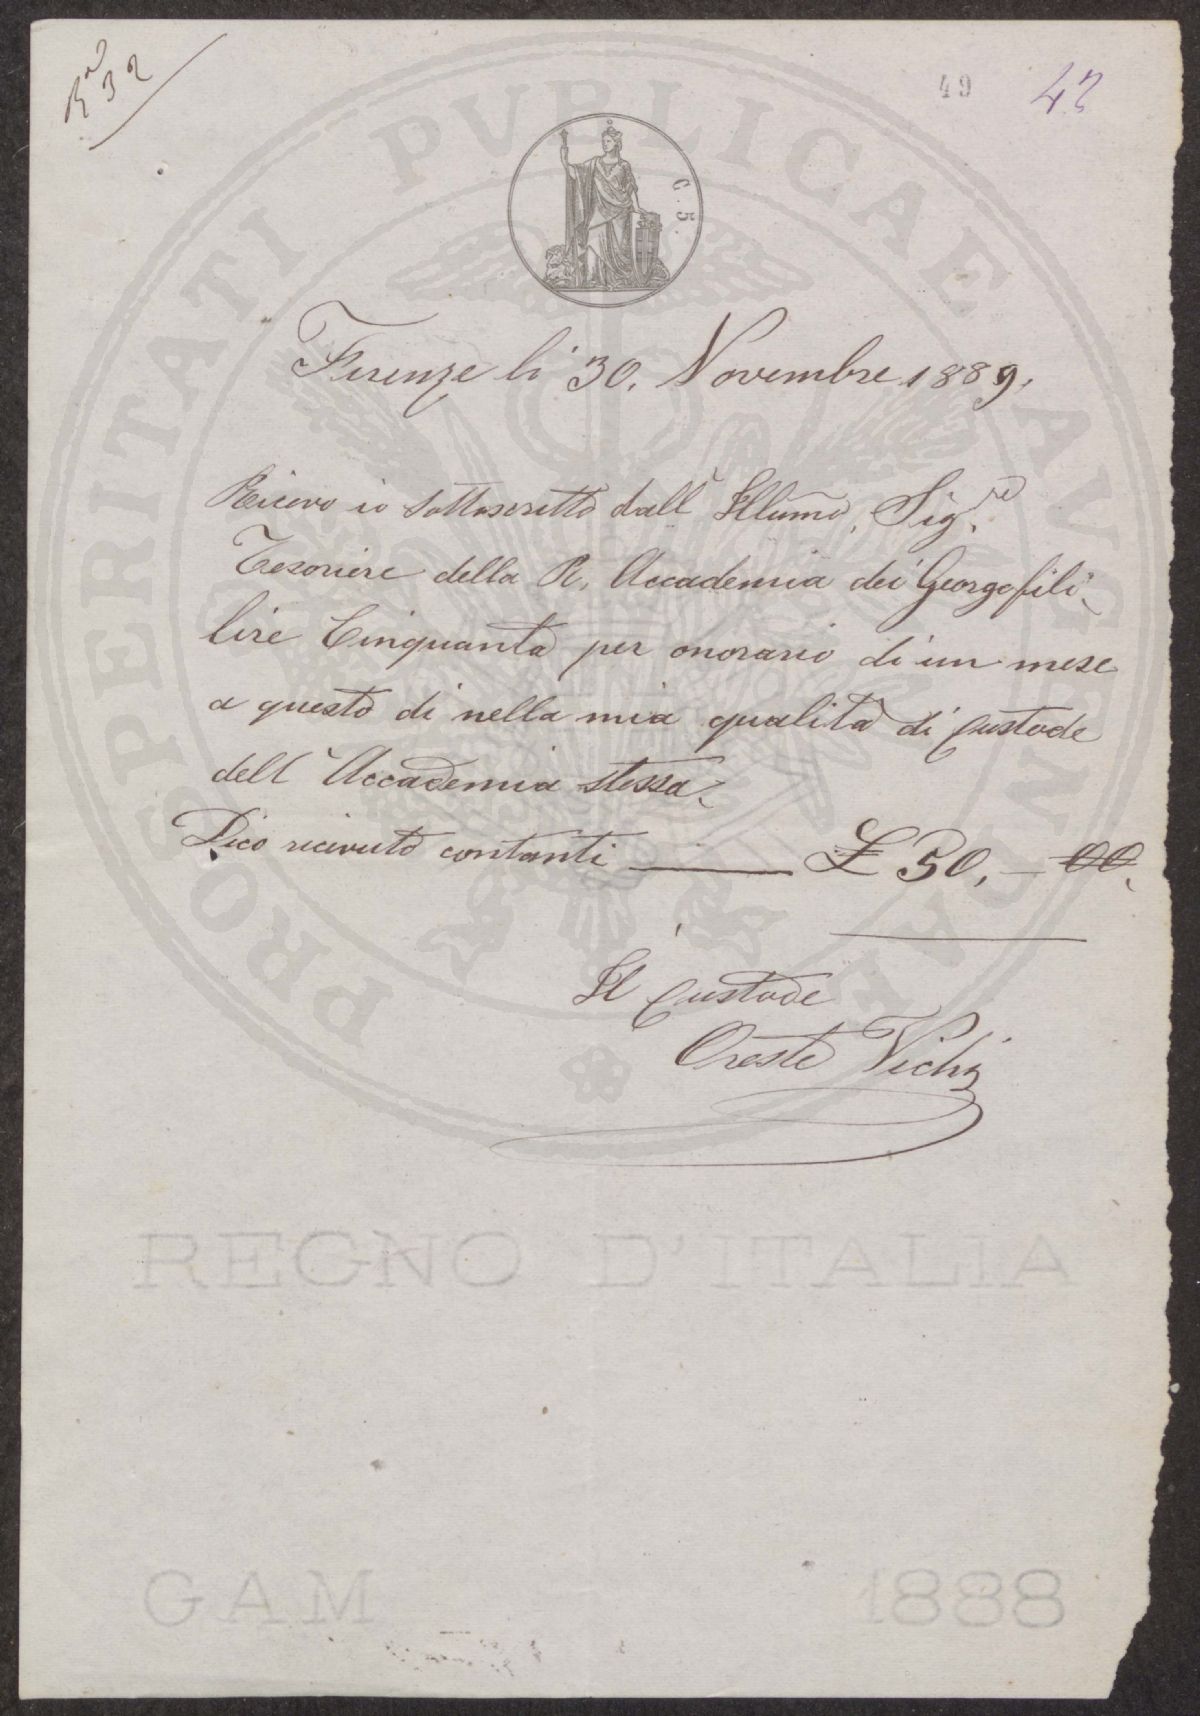 Rta 32
49
42
C. 5.
PROSPERITATI PVBLICAE AVGENDAE
Firenze li 30. Novembre 1889.
Ricevo io sottoscritto dall' Illumo. Sig.re
Tesoriere della R. Accademia dei Georgofili
lire Cinquanta per onorario di un mese
a questo di nella mia qualità di Custode
dell' Accademia stessa.
Dico ricevuto contanti £ 50. - 00.
Il Custode
Oreste Vichi
REGNO D'ITALIA
GAM 1888